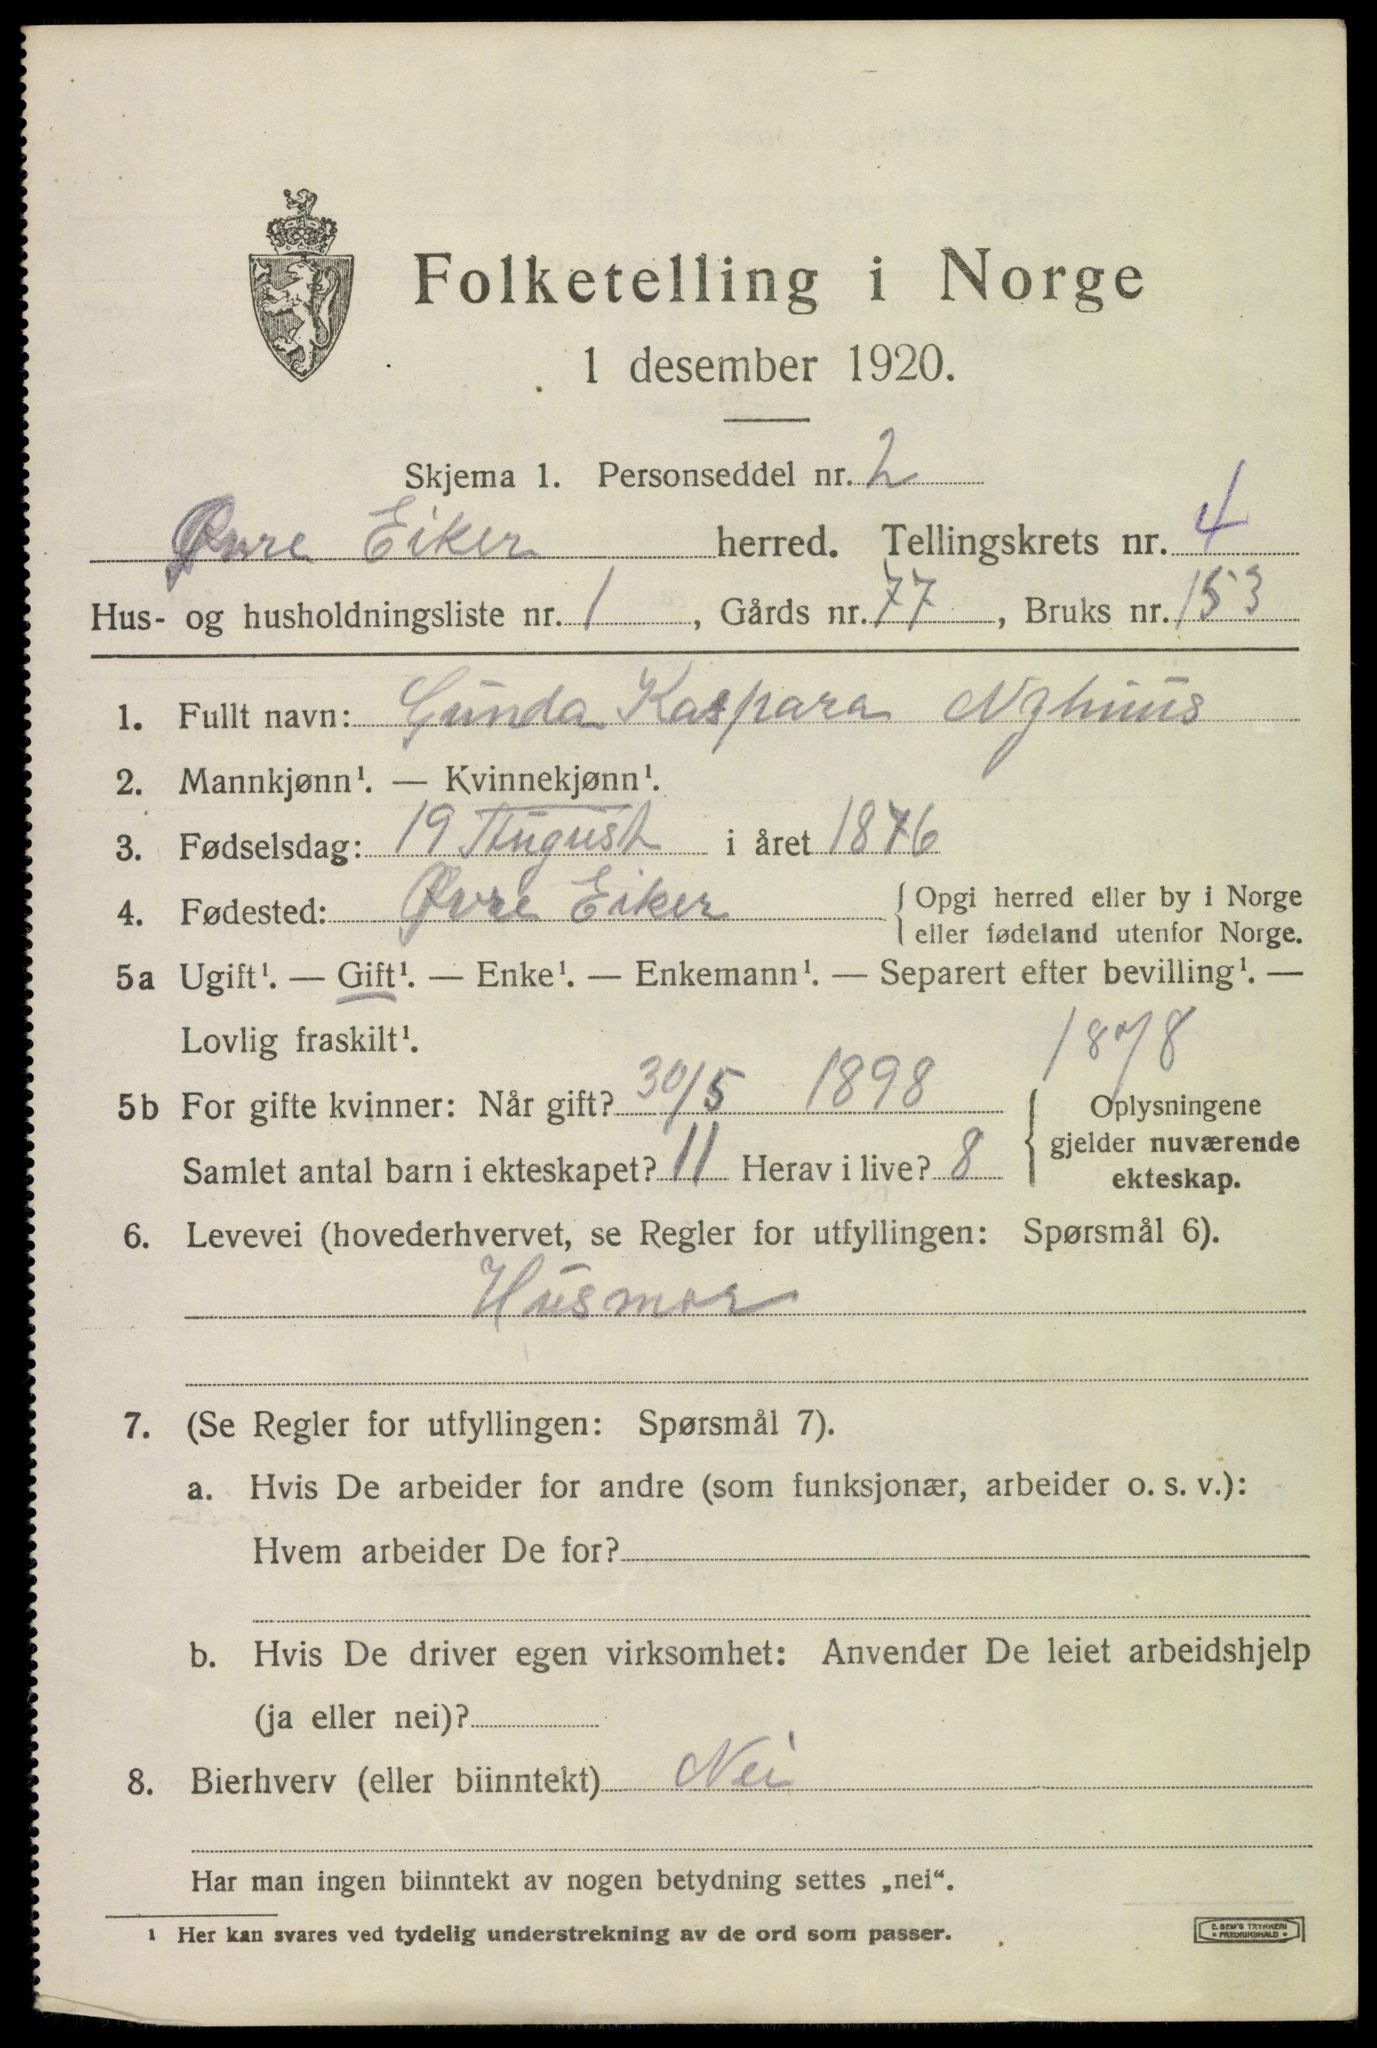 Folketelling i Norge
1 desember 1920.
Skjema 1. Personseddel nr. 2
Øvre Eiker herred. Tellingskrets nr. 4
Hus- og husholdningsliste nr. 1, Gårds nr. 77, Bruks nr. 153
1. Fullt navn: Gunda Kaspara Nyhuus
2. Mannkjønn¹. — Kvinnekjønn¹.
3. Fødselsdag: 19 August i året 1876
4. Fødested: Øvre Eiker { Opgi herred eller by i Norge
eller fødeland utenfor Norge.
5a Ugift¹. — Gift¹. — Enke¹. — Enkemann¹. — Separert efter bevilling¹. —
Lovlig fraskilt¹.
1878
5b For gifte kvinner: Når gift? 30/5 1898 { Oplysningene
gjelder nuværende
ekteskap.
Samlet antal barn i ekteskapet? 11 Herav i live? 8
6. Levevei (hovederhvervet, se Regler for utfyllingen: Spørsmål 6).
Husmor
7. (Se Regler for utfyllingen: Spørsmål 7).
a. Hvis De arbeider for andre (som funksjonær, arbeider o. s. v.):
Hvem arbeider De for?
b. Hvis De driver egen virksomhet: Anvender De leiet arbeidshjelp
(ja eller nei)?
8. Bierhverv (eller biinntekt) Nei
Har man ingen biinntekt av nogen betydning settes „nei“.
¹ Her kan svares ved tydelig understrekning av de ord som passer.
E. SEM'S TRYKKERI
• FREDRIKSHALD •